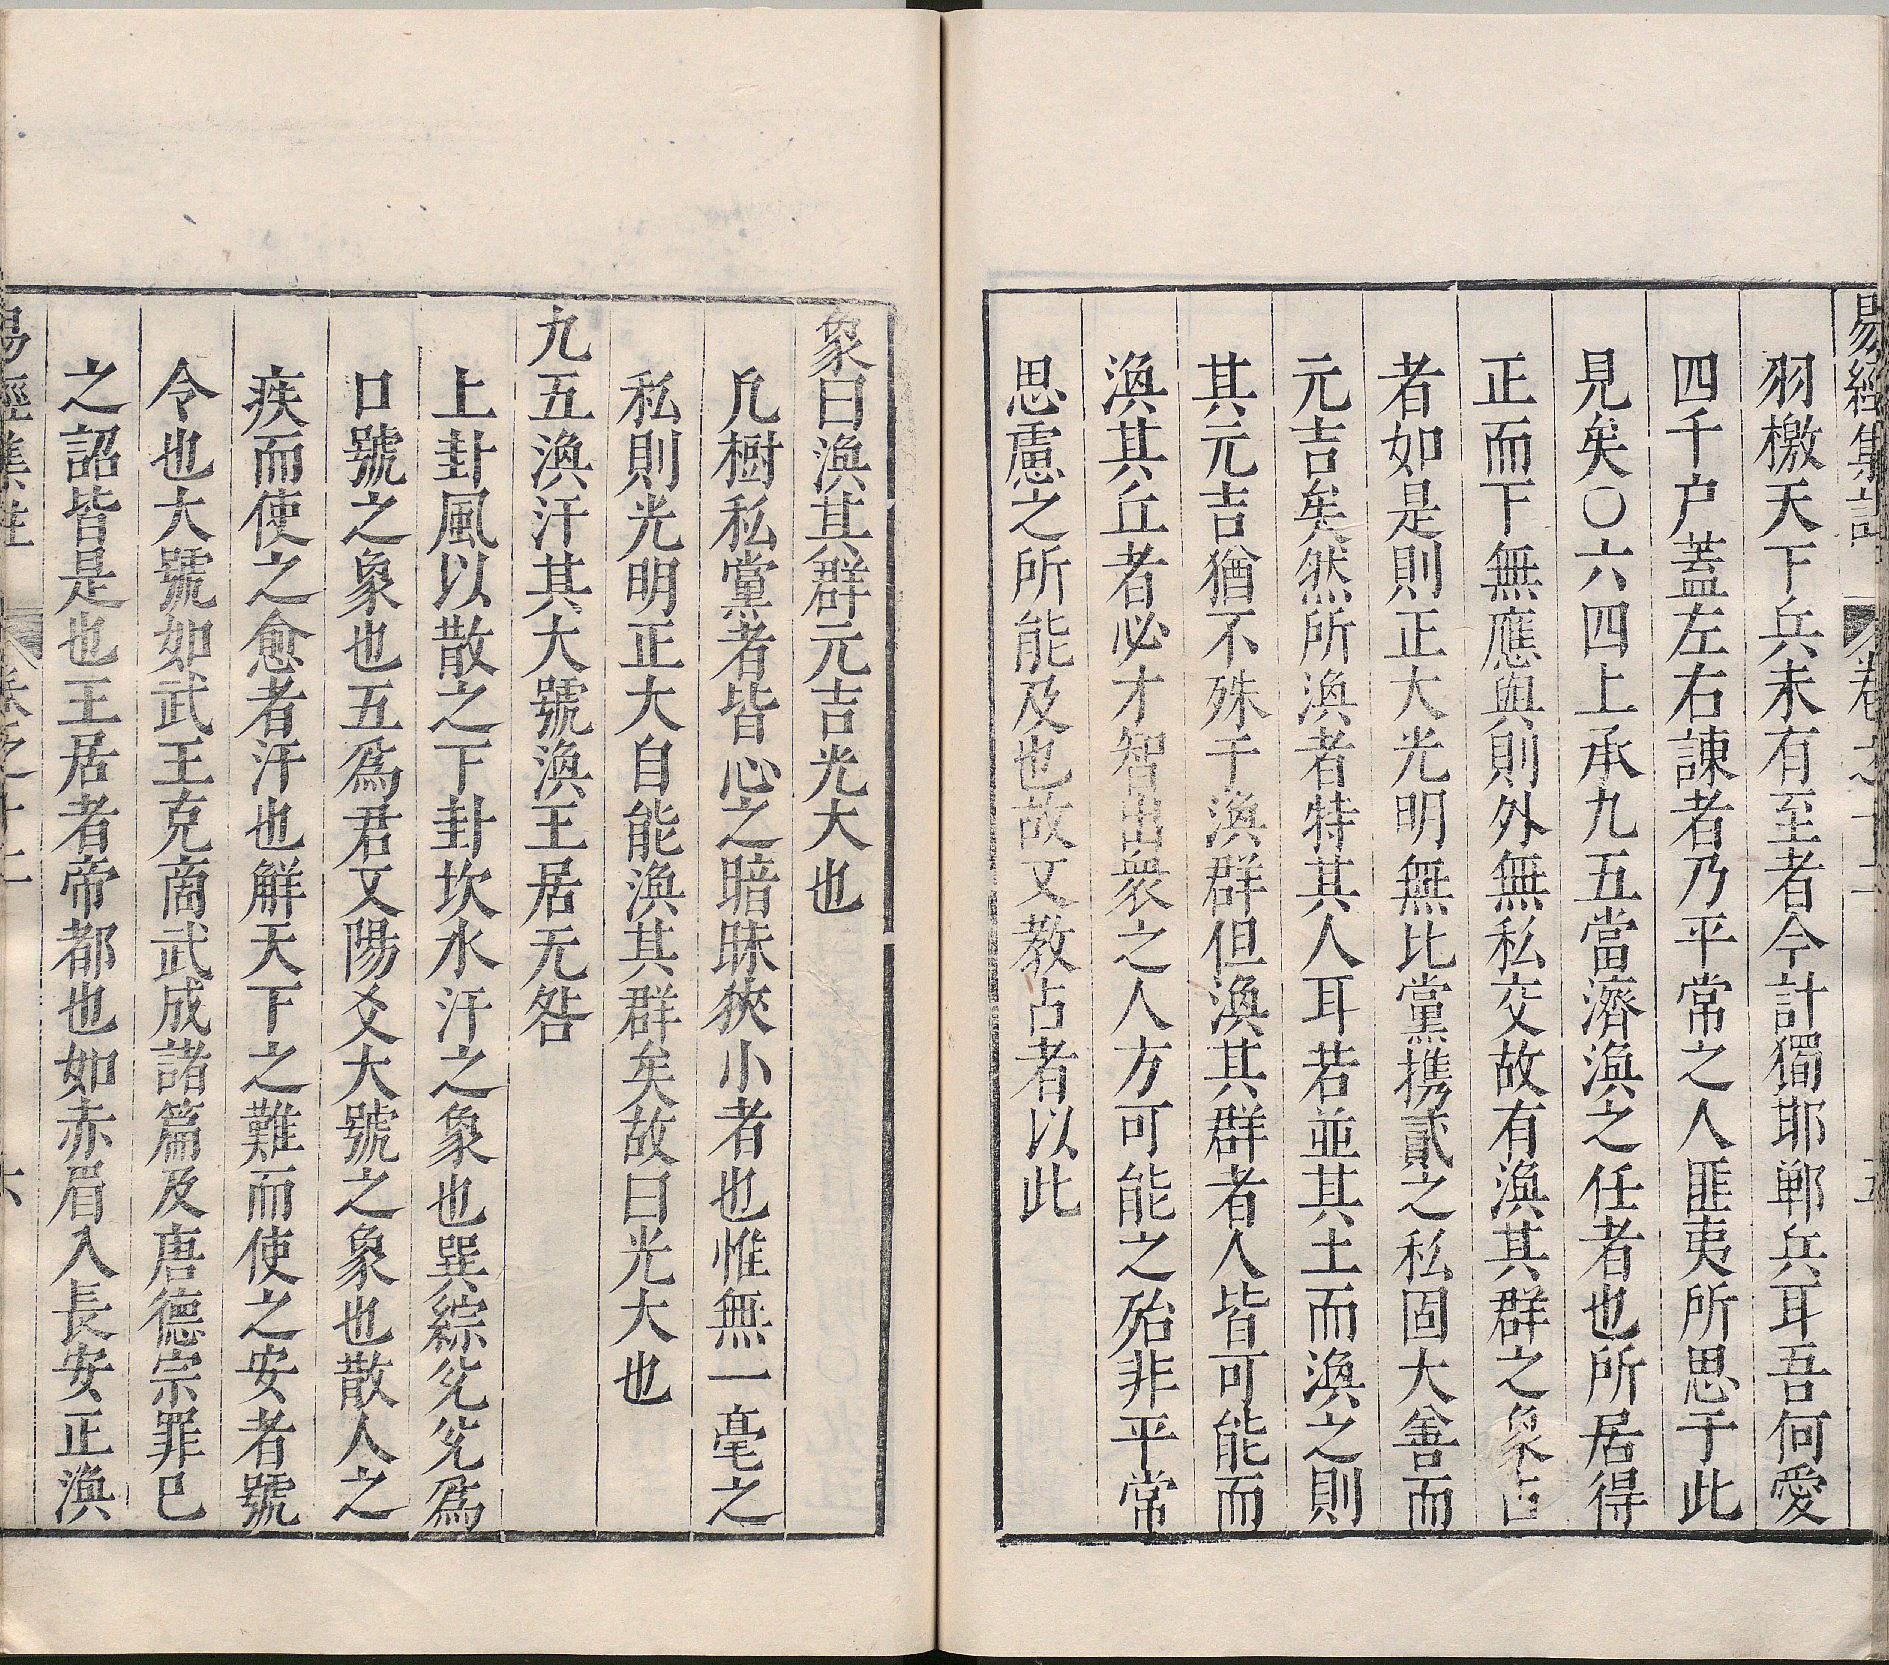 易經集註 卷之十二 五
羽檄天下兵未有至者今計獨耶郸兵耳吾何愛
四千户蓋左右諫者乃平常之人匪夷所思于此
見矣〇六四上承九五當濟渙之任者也所居得
正而下無應與則外無私交故有渙其群之象占
者如是則正大光明無比黨携貳之私固大善而
元吉矣然所渙者特其人耳若並其土而渙之則
其元吉猶不殊于渙群但渙其群者人皆可能而
渙其丘者必才智出衆之人方可能之殆非平常
思慮之所能及也故又教占者以此
象曰渙其群元吉光大也
凡樹私黨者皆心之暗昧狹小者也惟無一毫之
私則光明正大自能渙其群矣故曰光大也
九五渙汗其大號渙王居无咎
上卦風以散之下卦坎水汗之象也巽綜兊兊爲
口號之象也五爲君又陽爻大號之象也散人之
疾而使之愈者汗也解天下之難而使之安者號
令也大號如武王克商武成諸篇及唐德宗罪已
之詔皆是也王居者帝都也如赤眉入長安正渙
易經集註 卷之十二 六